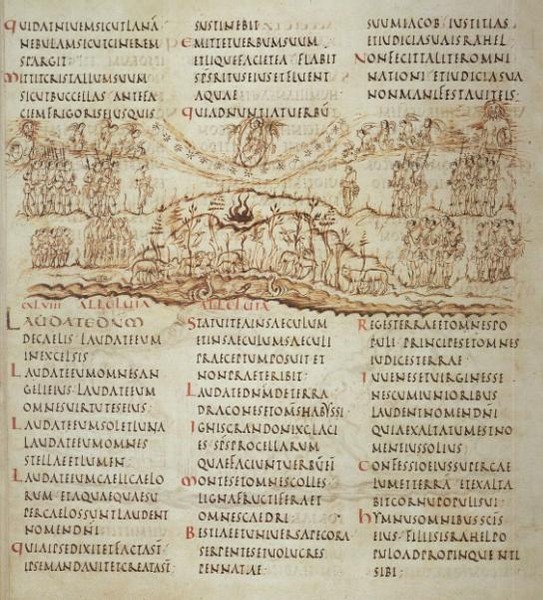 QUIDATNIUEMSICUTLANĀ
NEBULAMSICUTCINEREM
SPARGIT
MITTITCRISTALLUMSUUM
SICUTBUCCELLAS ANTEFA
CIEMFRIGORISEIUSQUIS
SUSTINEBIT
EMITTETUERBUMSUUM
ETLIQUEFACIETEA FLABIT
SPIRITUSEIUSETFLUENT
AQUAE
QUIADNUNTIATUERBŪ
SUUMIACOB IUSTITIAS
ETIUDICIASUAISRAHEL
NONFECITTALITEROMNI
NATIONI ETIUDICIASUA
NONMANIFESTAUITEIS
CXLVIII ALLELUIA
ALLELUIA
LAUDATEDNM
DECAELIS LAUDATEEUM
INEXCELSIS
LAUDATEEUMOMNESAN
GELIEIUS LAUDATEEUM
OMNESUIRTUTESEIUS
LAUDATEEUMSOLETLUNA
LAUDATEEUMOMNES
STELLAEETLUMEN
LAUDATEEUMCAELICAELO
RUM ETAQUAEQUAESU
PERCAELOSSUNTLAUDENT
NOMENDNI
QUIAIPSEDIXITETFACTAST
IPSEMANDAUITETCREATAST
STATUITEAINSAECULUM
ETINSAECULUMSAECULI
PRAECEPTUMPOSUIT ET
NONPRAETERIBIT
LAUDATEDNMDETERRA
DRACONESETOMSHABYSSI
IGNISGRANDONIXGLACI
ES SPSPROCELLARUM
QUAEFACIUNTUERBUEI
MONTESETOMNESCOLLES
LIGNAFRUCTIFERAET
OMNESCAEDRI
BESTIAEETUNIUERSAPECORA
SERPENTESETUOLUCRES
PENNATAE
REGESTERRAEETOMNESPO
PULI PRINCIPESETOMNES
IUDICESTERRAE
IUUENESETUIRGINESSE
NESCUMIUNIORIBUS
LAUDENTNOMENDNI
QUIAEXALTATUMESTNO
MENEIUSSOLIUS
CONFESSIOEIUSSUPERCAE
LUMETTERRA ETEXALTA
BITCORNUPOPULISUI
HYMNUSOMNIBUSSCIS
EIUS FILIISISRAHELPO
PULOADPROPINQUENTI
SIBI